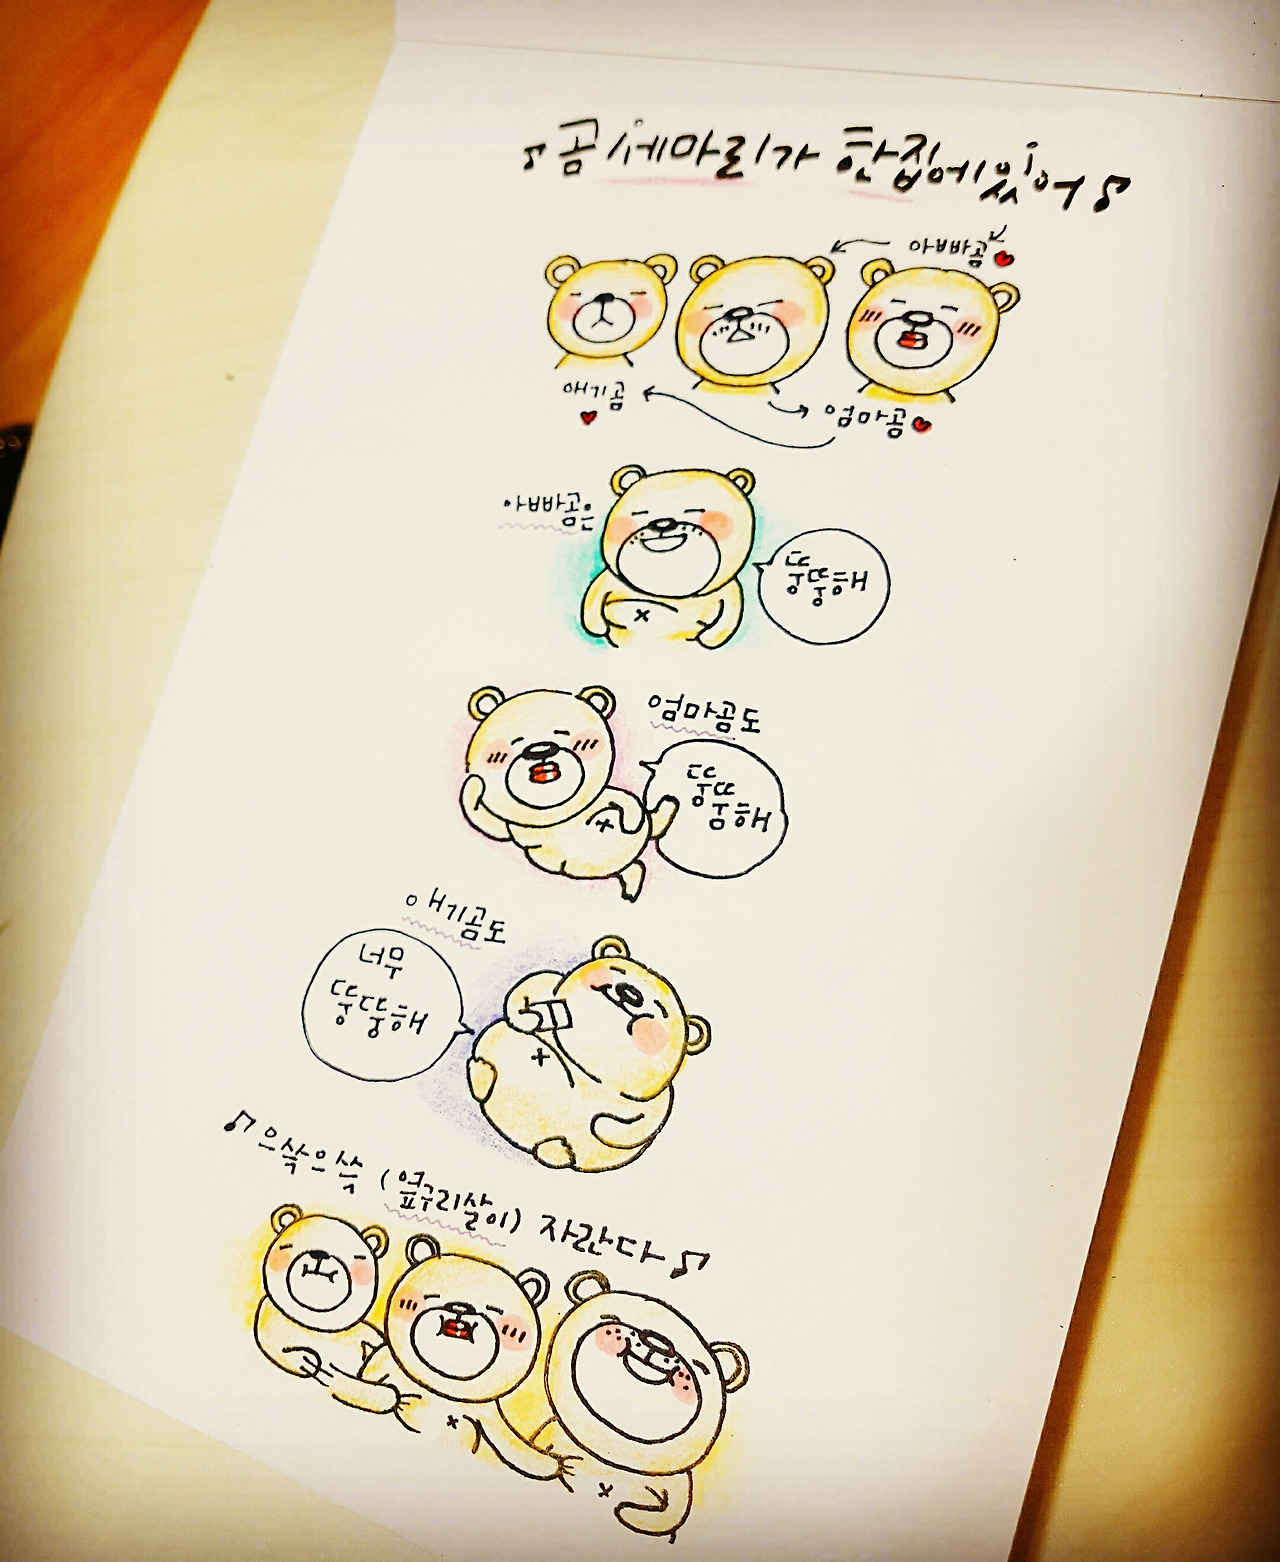 ♪곰 세마리가 한집에있어♪
아빠곰
애기곰
엄마곰
아빠곰은
뚱뚱해
엄마곰도
뚱뚱해
애기곰도
너무
뚱뚱해
♪으쓱으쓱 (옆구리살이) 자란다♪